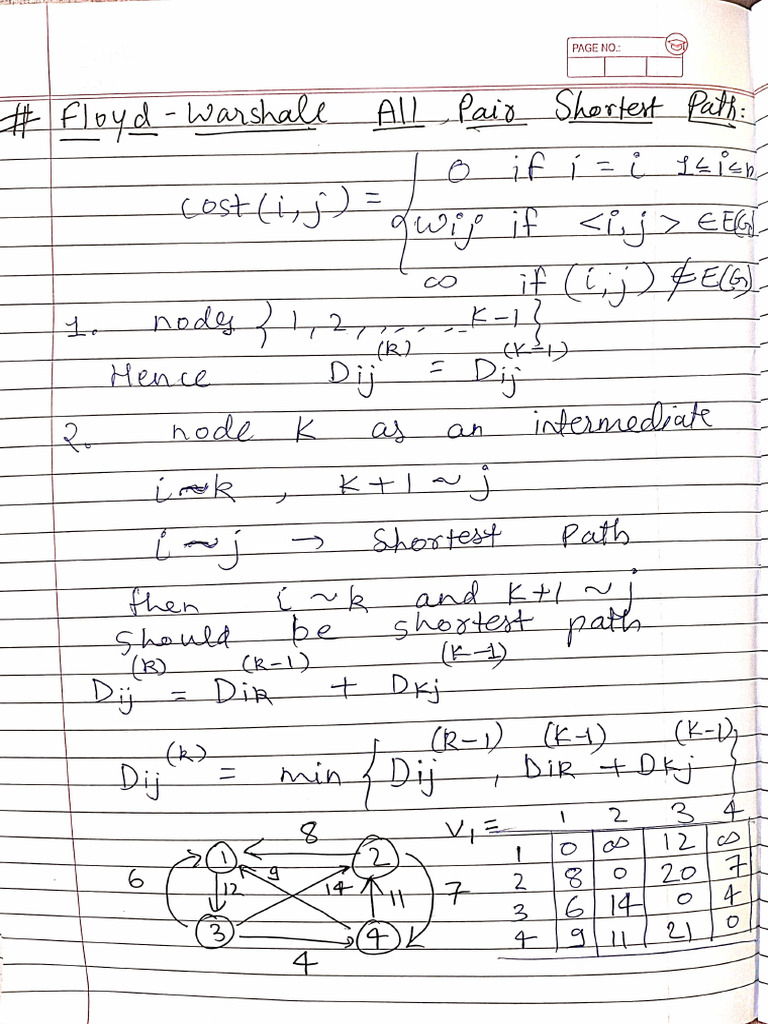 PAGE NO.:
# Floyd-Warshall All Pair Shortest Path:
cost(i,j) = { 0 if i = i 1≤i≤n
wij if <i,j> ∈ E(G)
∞ if (i,j) ∉ E(G)
1. nodes {1, 2, ,,,,.. K-1}
Hence Dij^(k) = Dij^(K-1)
2. node K as an intermediate
i ~ k , K+1 ~ j
i ~ j → Shortest Path
then i ~ k and K+1 ~ j
should be shortest path
Dij^(k) = Dik^(k-1) + Dkj^(K-1)
Dij^(k) = min { Dij^(k-1) , Dik^(K-1) + Dkj^(K-1) }
8
1 2
6 12 9 14 11 7
3 4
4
V1 = 1 2 3 4
1 0 ∞ 12 ∞
2 8 0 20 7
3 6 14 0 4
4 9 11 21 0